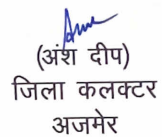 (अंश दीप)
जिला कलक्टर
अजमेर